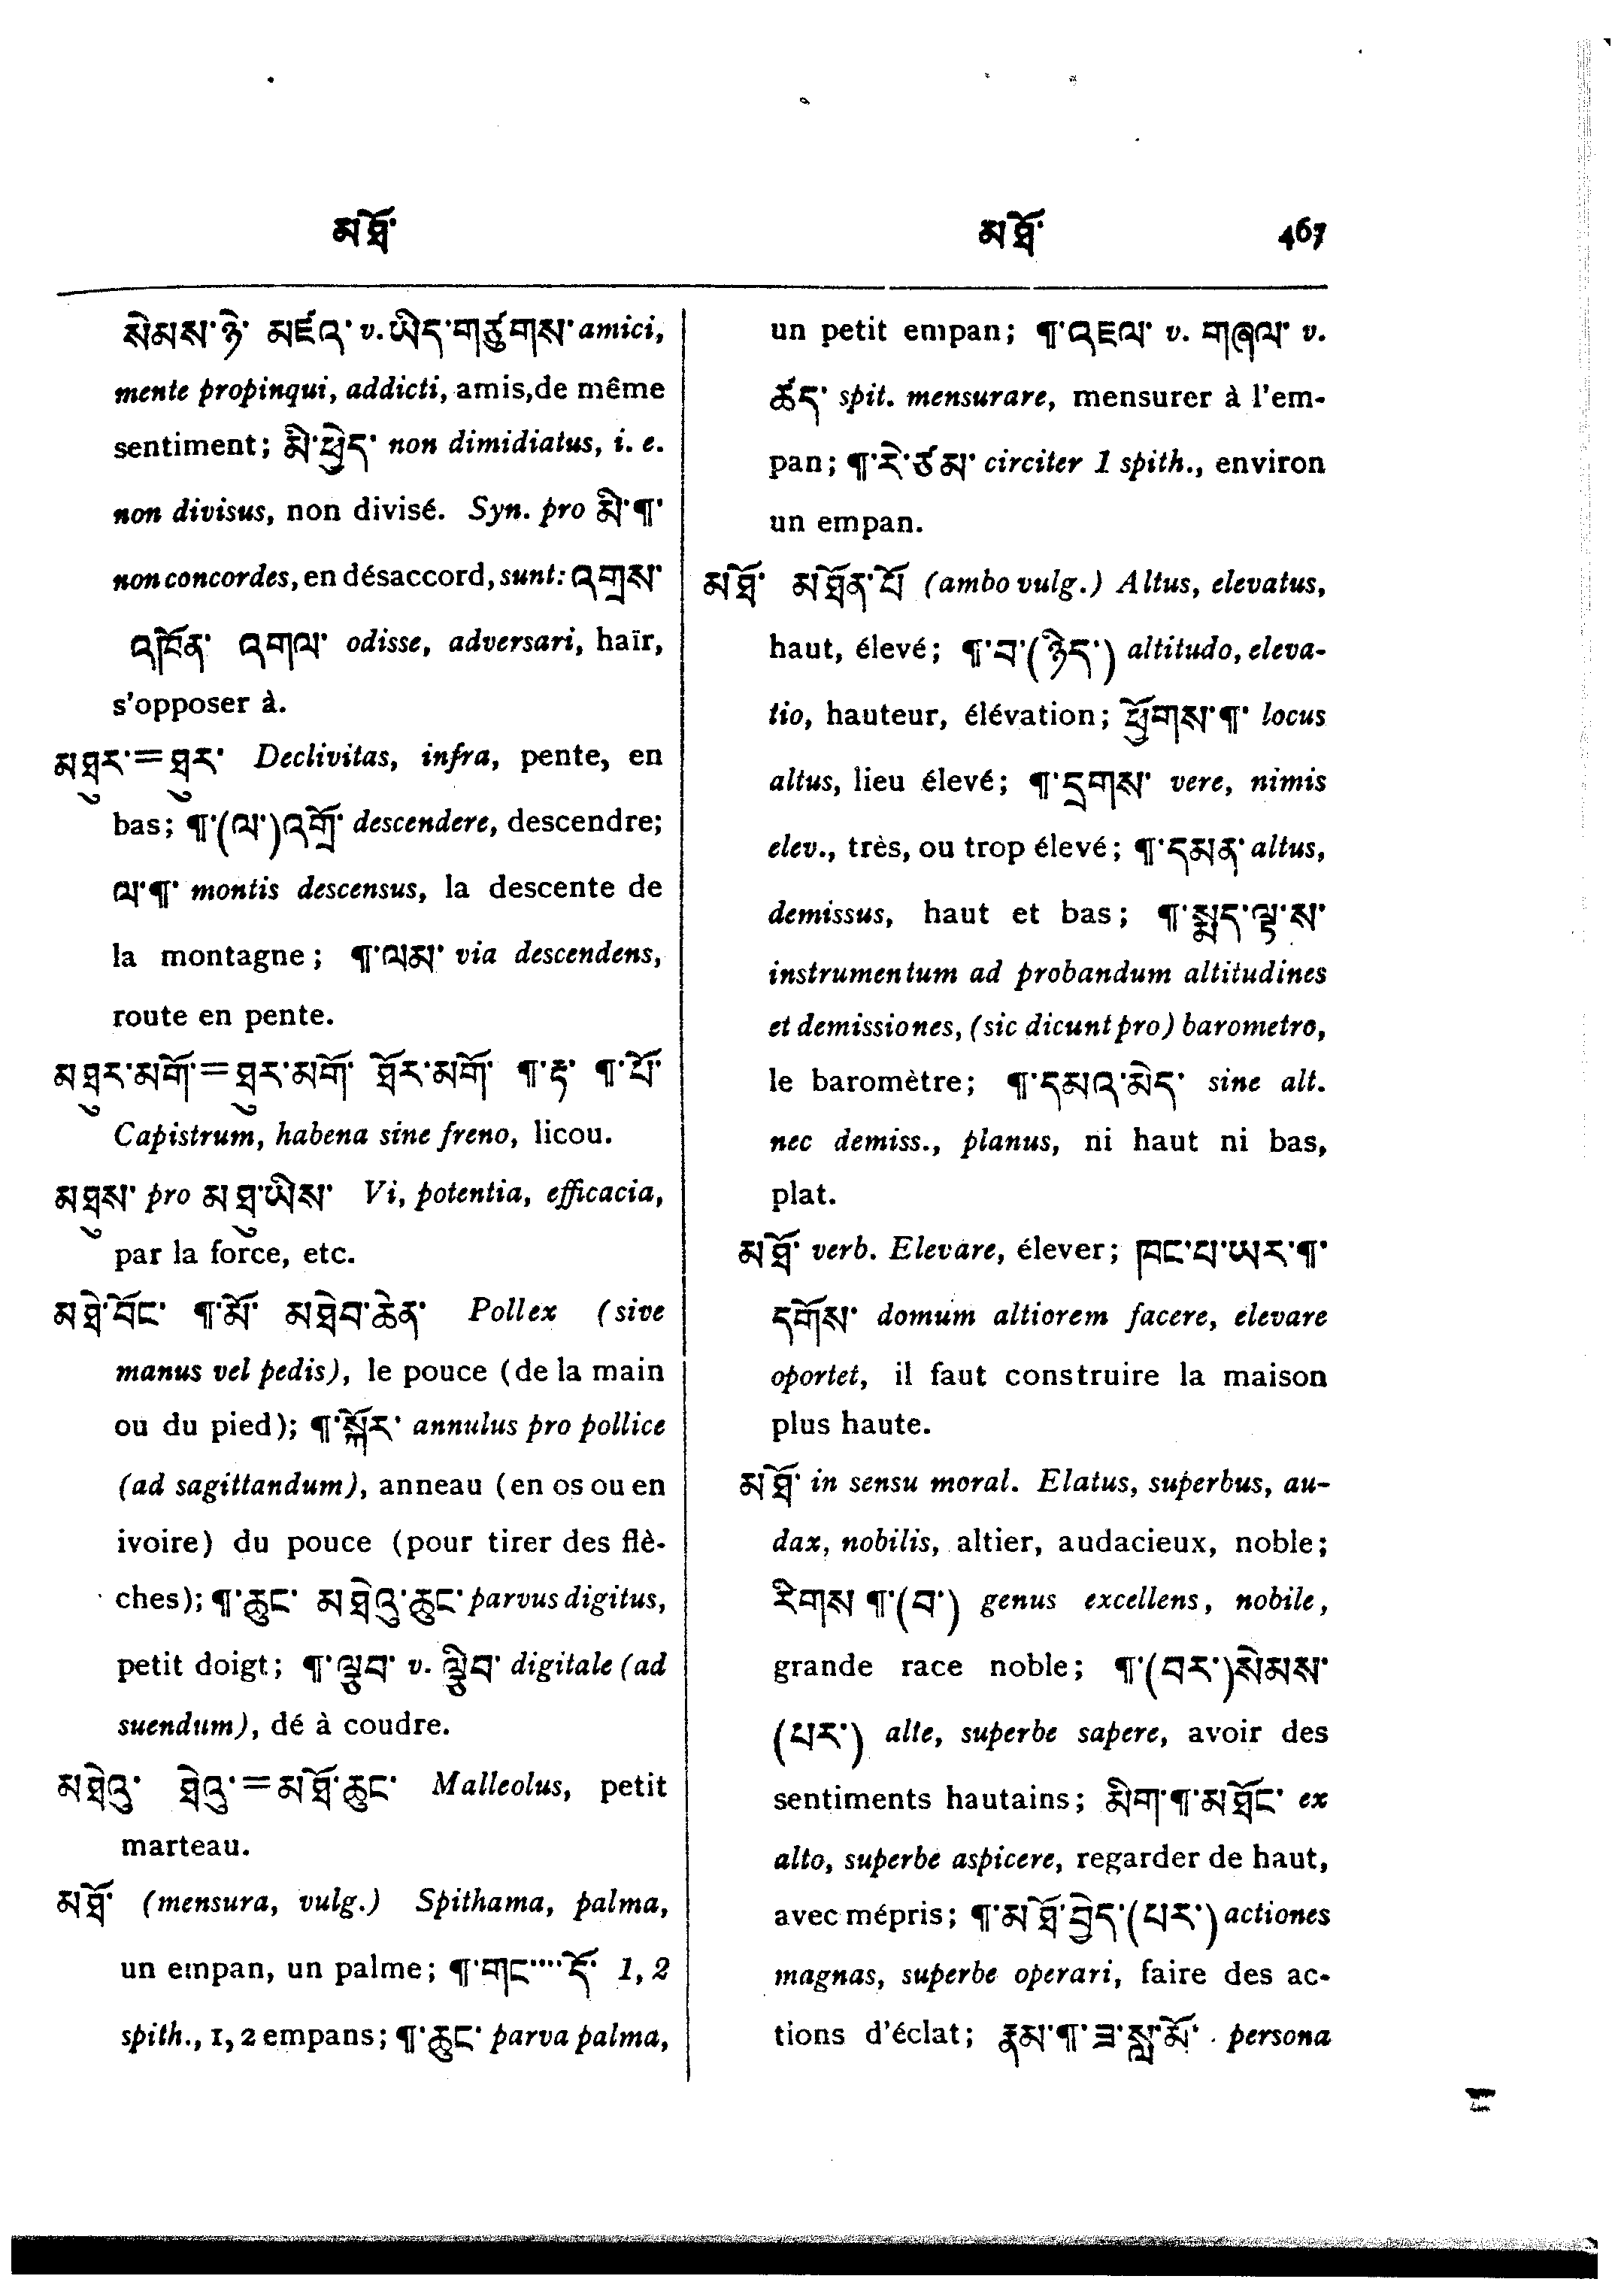 མཐོ་ མཐོ་ 467
སེམས་ཉེ་ མཛའ་ v. ཡིད་གཙུགས་ amici,
mente propinqui, addicti, amis,de même
sentiment; མི་ཕྱེད་ non dimidiatus, i. e.
non divisus, non divisé. Syn. pro མི་¶་
non concordes, en désaccord, sunt: འགྲས་
འཁོན་ འགལ་ odisse, adversari, haïr,
s'opposer à.
མཐུར་=ཐུར་ Declivitas, infra, pente, en
bas; ¶་(ལ་)འགྲོ་ descendere, descendre;
ལ་¶་ montis descensus, la descente de
la montagne; ¶་ལམ་ via descendens,
route en pente.
མཐུར་མགོ་=ཐུར་མགོ་ ཐོར་མགོ་ ¶་རྟ་ ¶་པོ་
Capistrum, habena sine freno, licou.
མཐུས་ pro མཐུ་ཡིས་ Vi, potentia, efficacia,
par la force, etc.
མཐེ་བོང་ ¶་མོ་ མཐེབ་ཆེན་ Pollex (sive
manus vel pedis), le pouce (de la main
ou du pied); ¶་སྐོར་ annulus pro pollice
(ad sagittandum), anneau (en os ou en
ivoire) du pouce (pour tirer des flè-
ches); ¶་ཆུང་ མཐེའུ་ཆུང་ parvus digitus,
petit doigt; ¶་ལྷུབ་ v. ལྷིབ་ digitale (ad
suendum), dé à coudre.
མཐེའུ་ ཐེའུ་=མཐོ་ཆུང་ Malleolus, petit
marteau.
མཐོ་ (mensura, vulg.) Spithama, palma,
un empan, un palme; ¶་གང་····དོ་ 1, 2
spith., 1, 2 empans; ¶་ཆུང་ parva palma,
un petit empan; ¶་འཇལ་ v. གཞལ་ v.
ཚད་ spit. mensurare, mensurer à l'em-
pan; ¶་རེ་ཙམ་ circiter 1 spith., environ
un empan.
མཐོ་ མཐོན་པོ (ambo vulg.) Altus, elevatus,
haut, élevé; ¶་བ་(ཉིད་) altitudo, eleva-
tio, hauteur, élévation; ཕྱོགས་¶་ locus
altus, lieu élevé; ¶་དྲགས་ vere, nimis
elev., très, ou trop élevé; ¶་དམན་ altus,
demissus, haut et bas; ¶་སྨད་ལྟ་ས་
instrumentum ad probandum altitudines
et demissiones, (sic dicunt pro) barometro,
le baromètre; ¶་དམའ་མེད་ sine alt.
nec demiss., planus, ni haut ni bas,
plat.
མཐོ་ verb. Elevare, élever; ཁང་པ་ཡར་¶་
དགོས་ domum altiorem facere, elevare
oportet, il faut construire la maison
plus haute.
མཐོ་ in sensu moral. Elatus, superbus, au-
dax, nobilis, altier, audacieux, noble;
རིགས ¶་(བ་) genus excellens, nobile,
grande race noble; ¶་(བར་)སེམས་
(པར་) alte, superbe sapere, avoir des
sentiments hautains; མིག་¶་མཐོང་ ex
alto, superbe aspicere, regarder de haut,
avec mépris; ¶་མཐོ་བྱེད་(པར་) actiones
magnas, superbe operari, faire des ac-
tions d'éclat; རྣམ་¶་ཟ་སླ་མོ་ persona